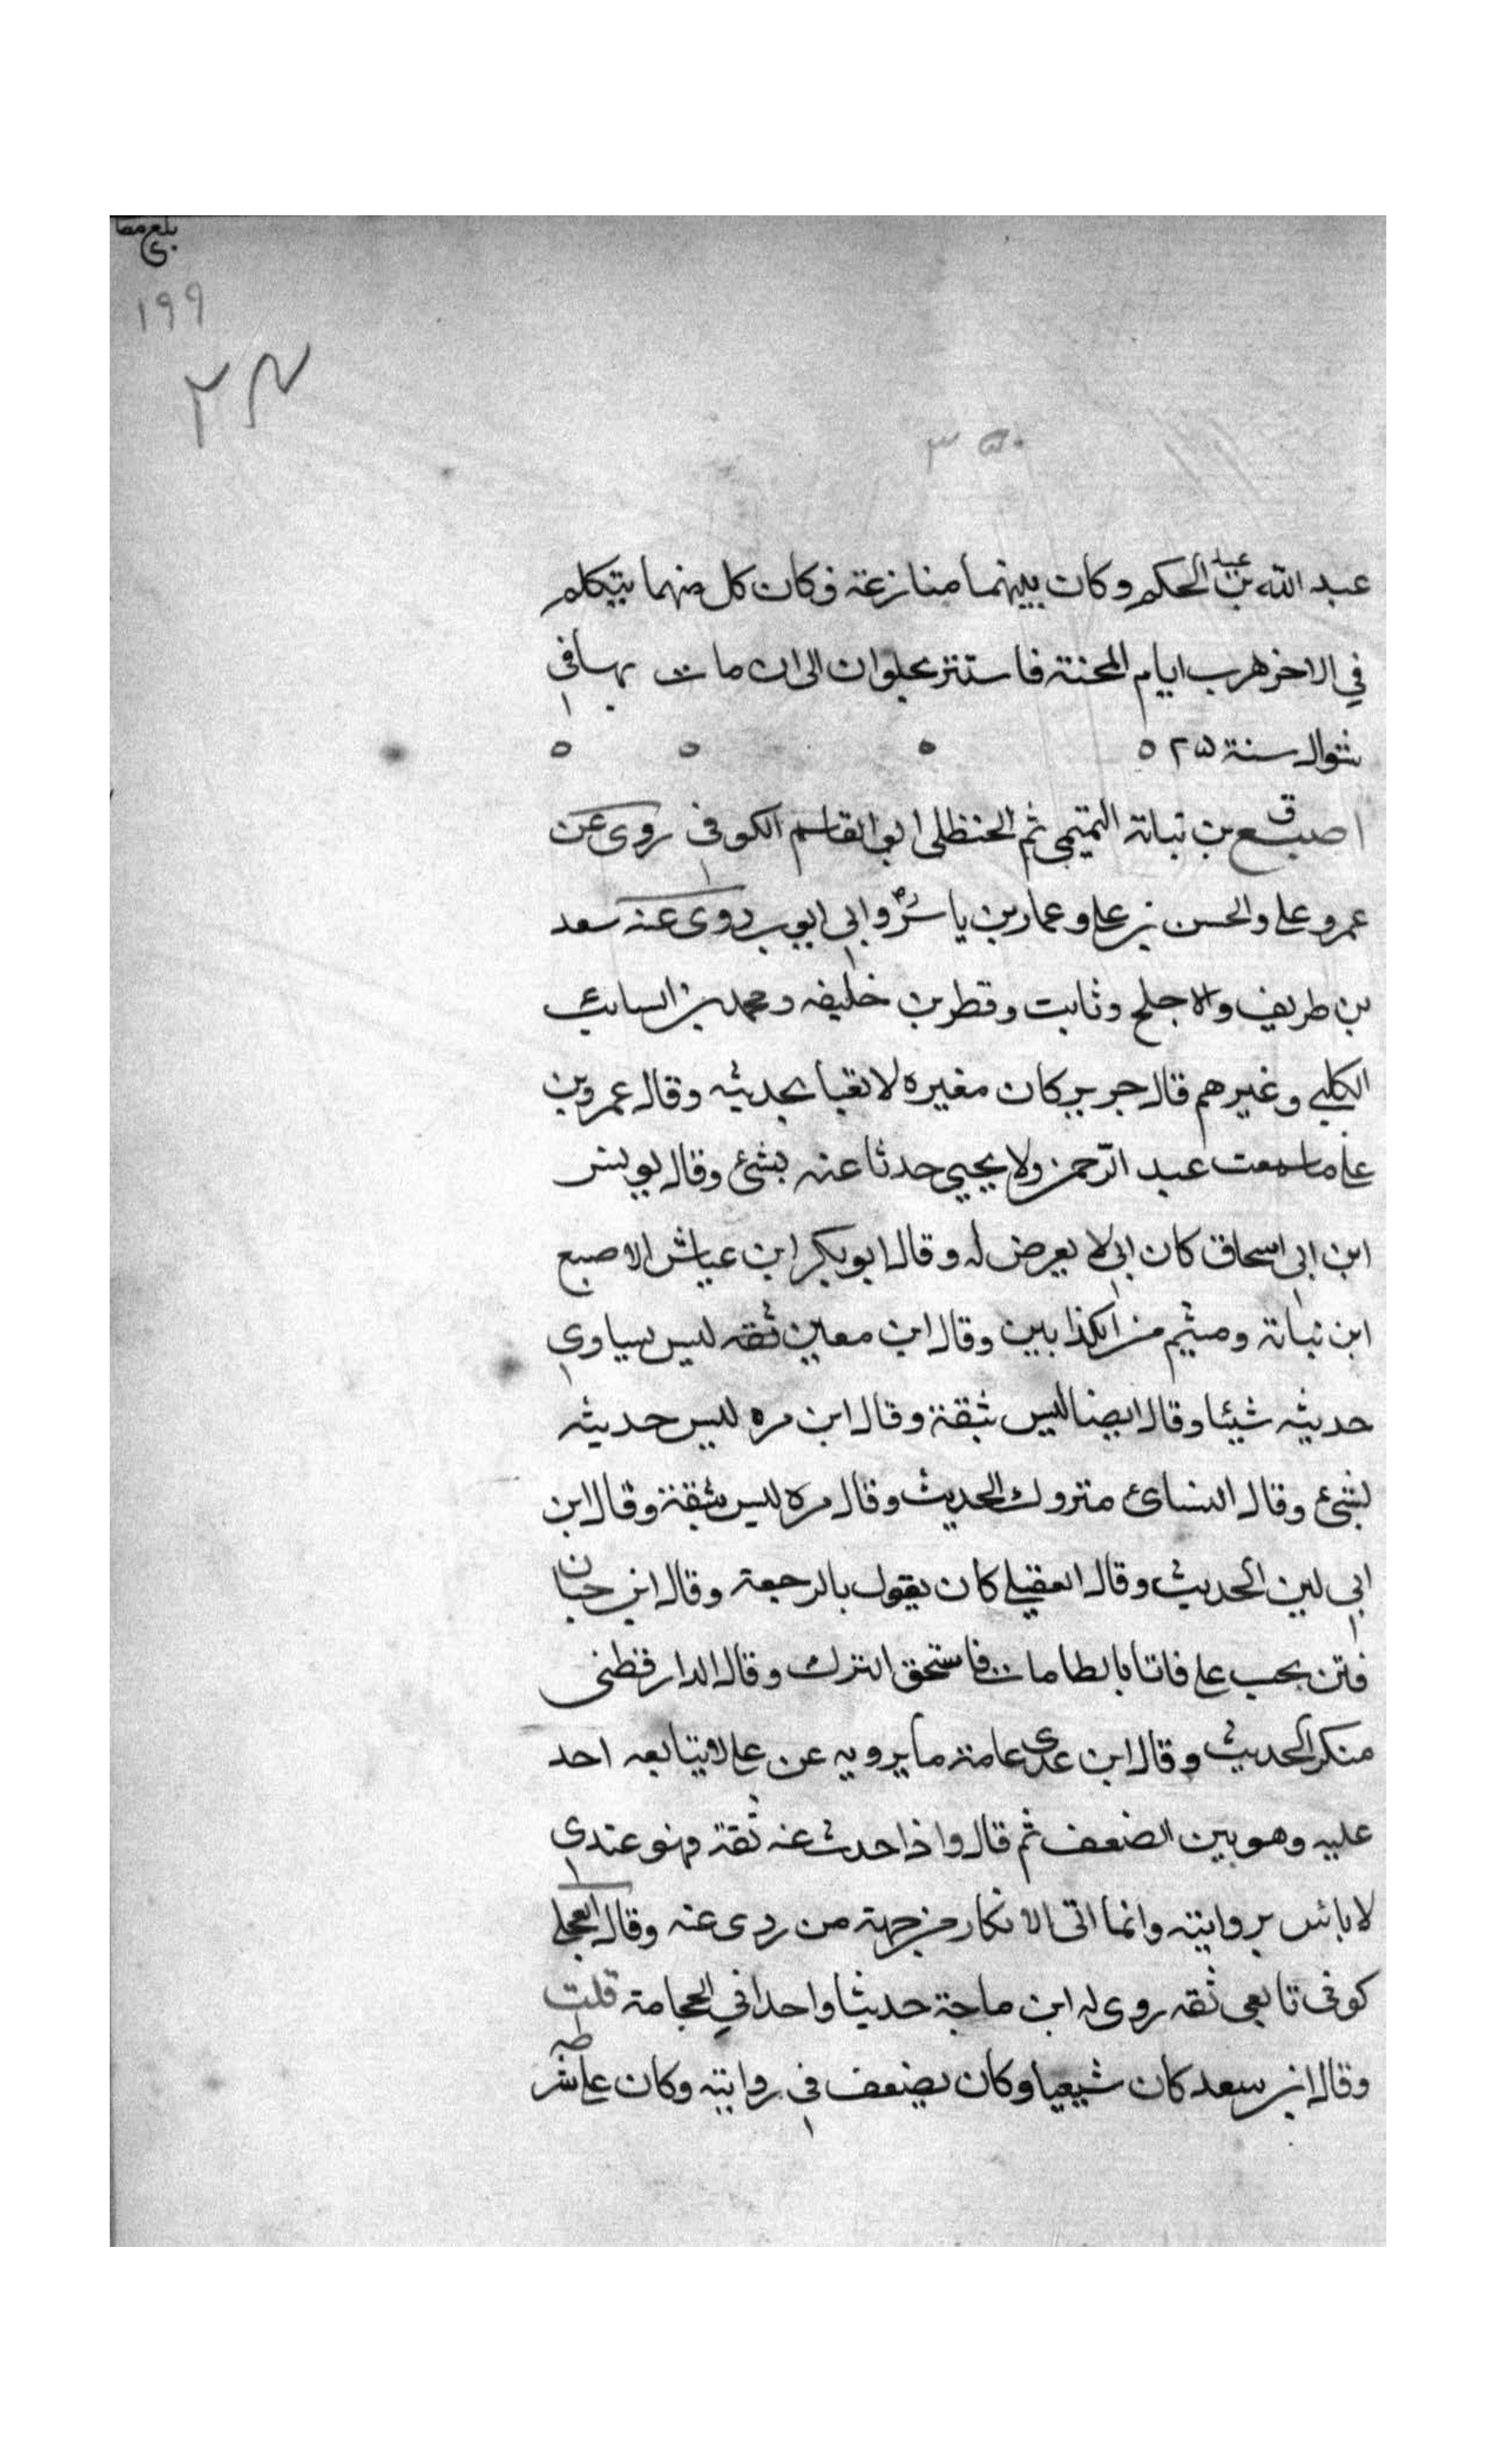 بلغ مقا
١٩٩
٣٥٠
عبد الله بن عبد الحكم وكان بينهما منازعة فكان كل منهما يتكلم
في الاخر هرب ايام المحنة فاستتر بحلوان الى ان مات بها في
شوال سنة ٥٢٢٥
اصبغ بن نباتة التميمي ثم الحنظلي ابو القاسم الكوفي روى عن
عمر وعلي والحسن بن علي وعمار بن ياسر وابي ايوب روى عنه سعد
بن طريف والاجلح وثابت وقطر بن خليفه ومحمد بن السايب
الكلبي وغيرهم قال جرير كان مغيره لا تعبا بحديثه وقال عمرو بن
علي ما سمعت عبد الرحمن ولا يحيي حدثا عنه بشئ وقال يونس
ابن ابي اسحاق كان ابي لا يعرض له وقال ابو بكر ابن عياش الاصبع
ابن نباتة وميثم من الكذابين وقال ابن معين ثقه ليس يساوي
حديثه شيئا وقال ايضا ليس بثقة وقال ابن مره ليس حديثه
بشئ وقال النسائ متروك الحديث وقال مره ليس بثقة وقال ابن
ابي لين الحديث وقال العقيلي كان يقول بالرجعة وقال ابن حبان
فتن بحب علي فاتا بالطامات فاستحق الترك وقال الدارقطني
منكر الحديث وقال ابن عدي عامة ما يرويه عن علي لا يتابعه احد
عليه وهو بين الضعف ثم قال واذا حدث عنه ثقة فهو عندي
لا بائس بروايته وانما اتى الانكار من جهة من روى عنه وقال العجلي
كوفي تابعي ثقه روى له ابن ماجة حديثا واحدا في الحجامة قلت
وقال ابن سعد كان شيعيا وكان يضعف في روايته وكان علي شرطه